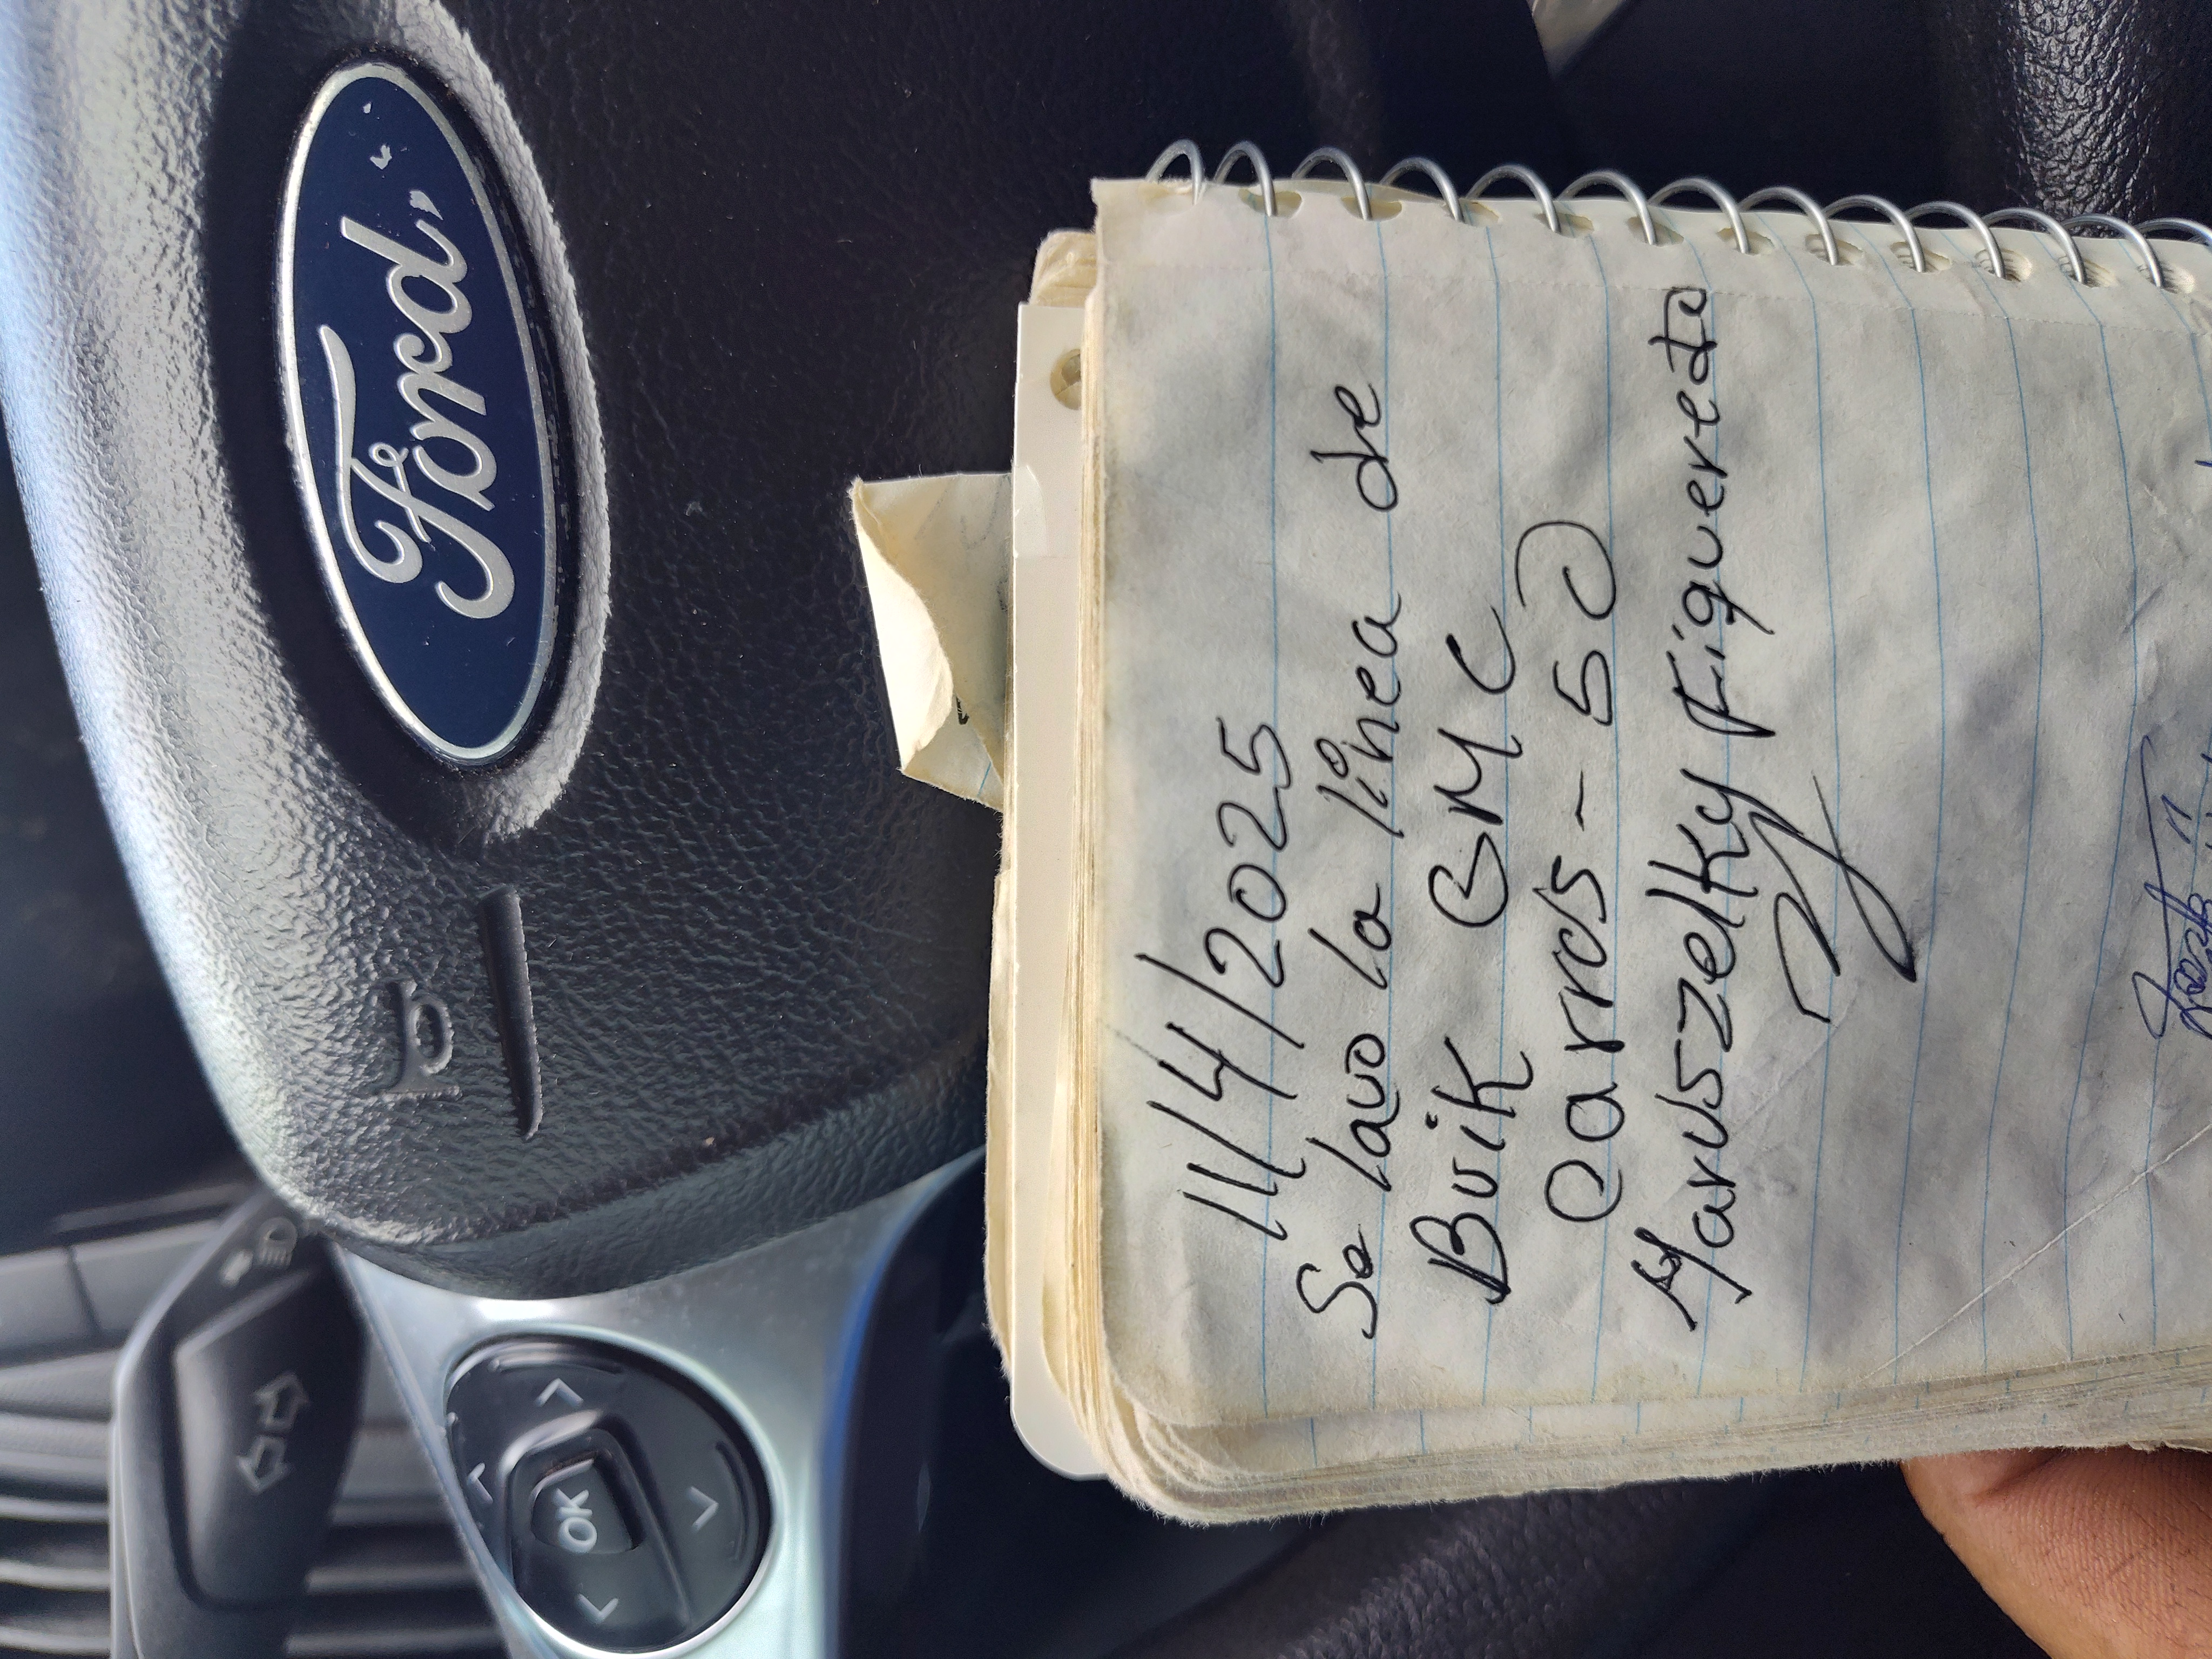 Ford
OK
11/4/2025
Se lavo la línea de
Buik GMC
Carros - 50
Maruszelky Figueredo